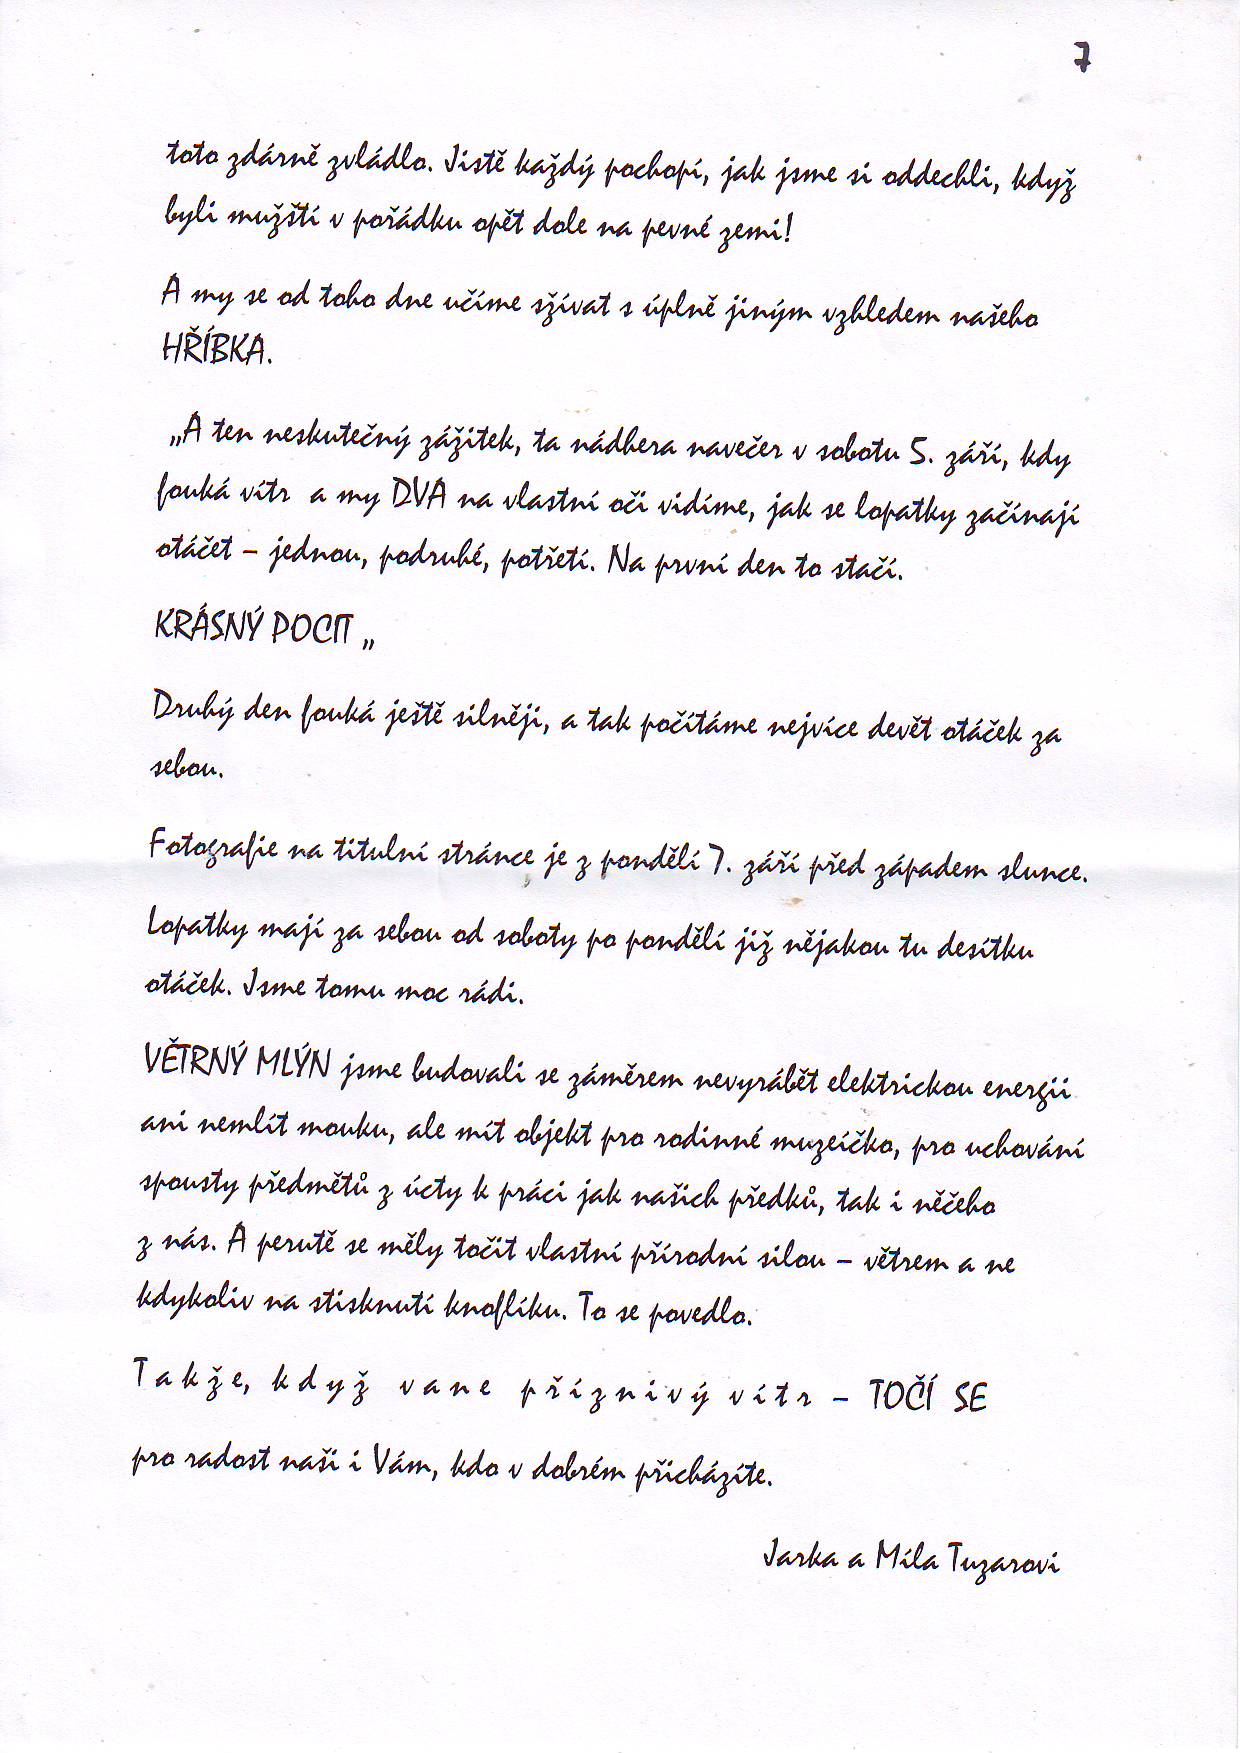 7
toto zdárně zvládlo. Jistě každý pochopí, jak jsme si oddechli, když
byli mužští v pořádku opět dole na pevné zemi!
A my se od toho dne učíme sžívat s úplně jiným vzhledem našeho
HŘÍBKA.
„A ten neskutečný zážitek, ta nádhera navečer v sobotu 5. září, kdy
fouká vítr a my DVA na vlastní oči vidíme, jak se lopatky začínají
otáčet – jednou, podruhé, potřetí. Na první den to stačí.
KRÁSNÝ POCIT „
Druhý den fouká ještě silněji, a tak počítáme nejvíce devět otáček za
sebou.
Fotografie na titulní stránce je z pondělí 7. září před západem slunce.
Lopatky mají za sebou od soboty po pondělí již nějakou tu desítku
otáček. Jsme tomu moc rádi.
VĚTRNÝ MLÝN jsme budovali se záměrem nevyrábět elektrickou energii
ani nemlít mouku, ale mít objekt pro rodinné muzeíčko, pro uchování
spousty předmětů z úcty k práci jak našich předků, tak i něčeho
z nás. A perutě se měly točit vlastní přírodní silou – větrem a ne
kdykoliv na stisknutí knoflíku. To se povedlo.
T a k ž e, k d y ž v a n e p ř í z n i v ý v í t r – TOČÍ SE
pro radost naši i Vám, kdo v dobrém přicházíte.
Jarka a Míla Tuzarovi